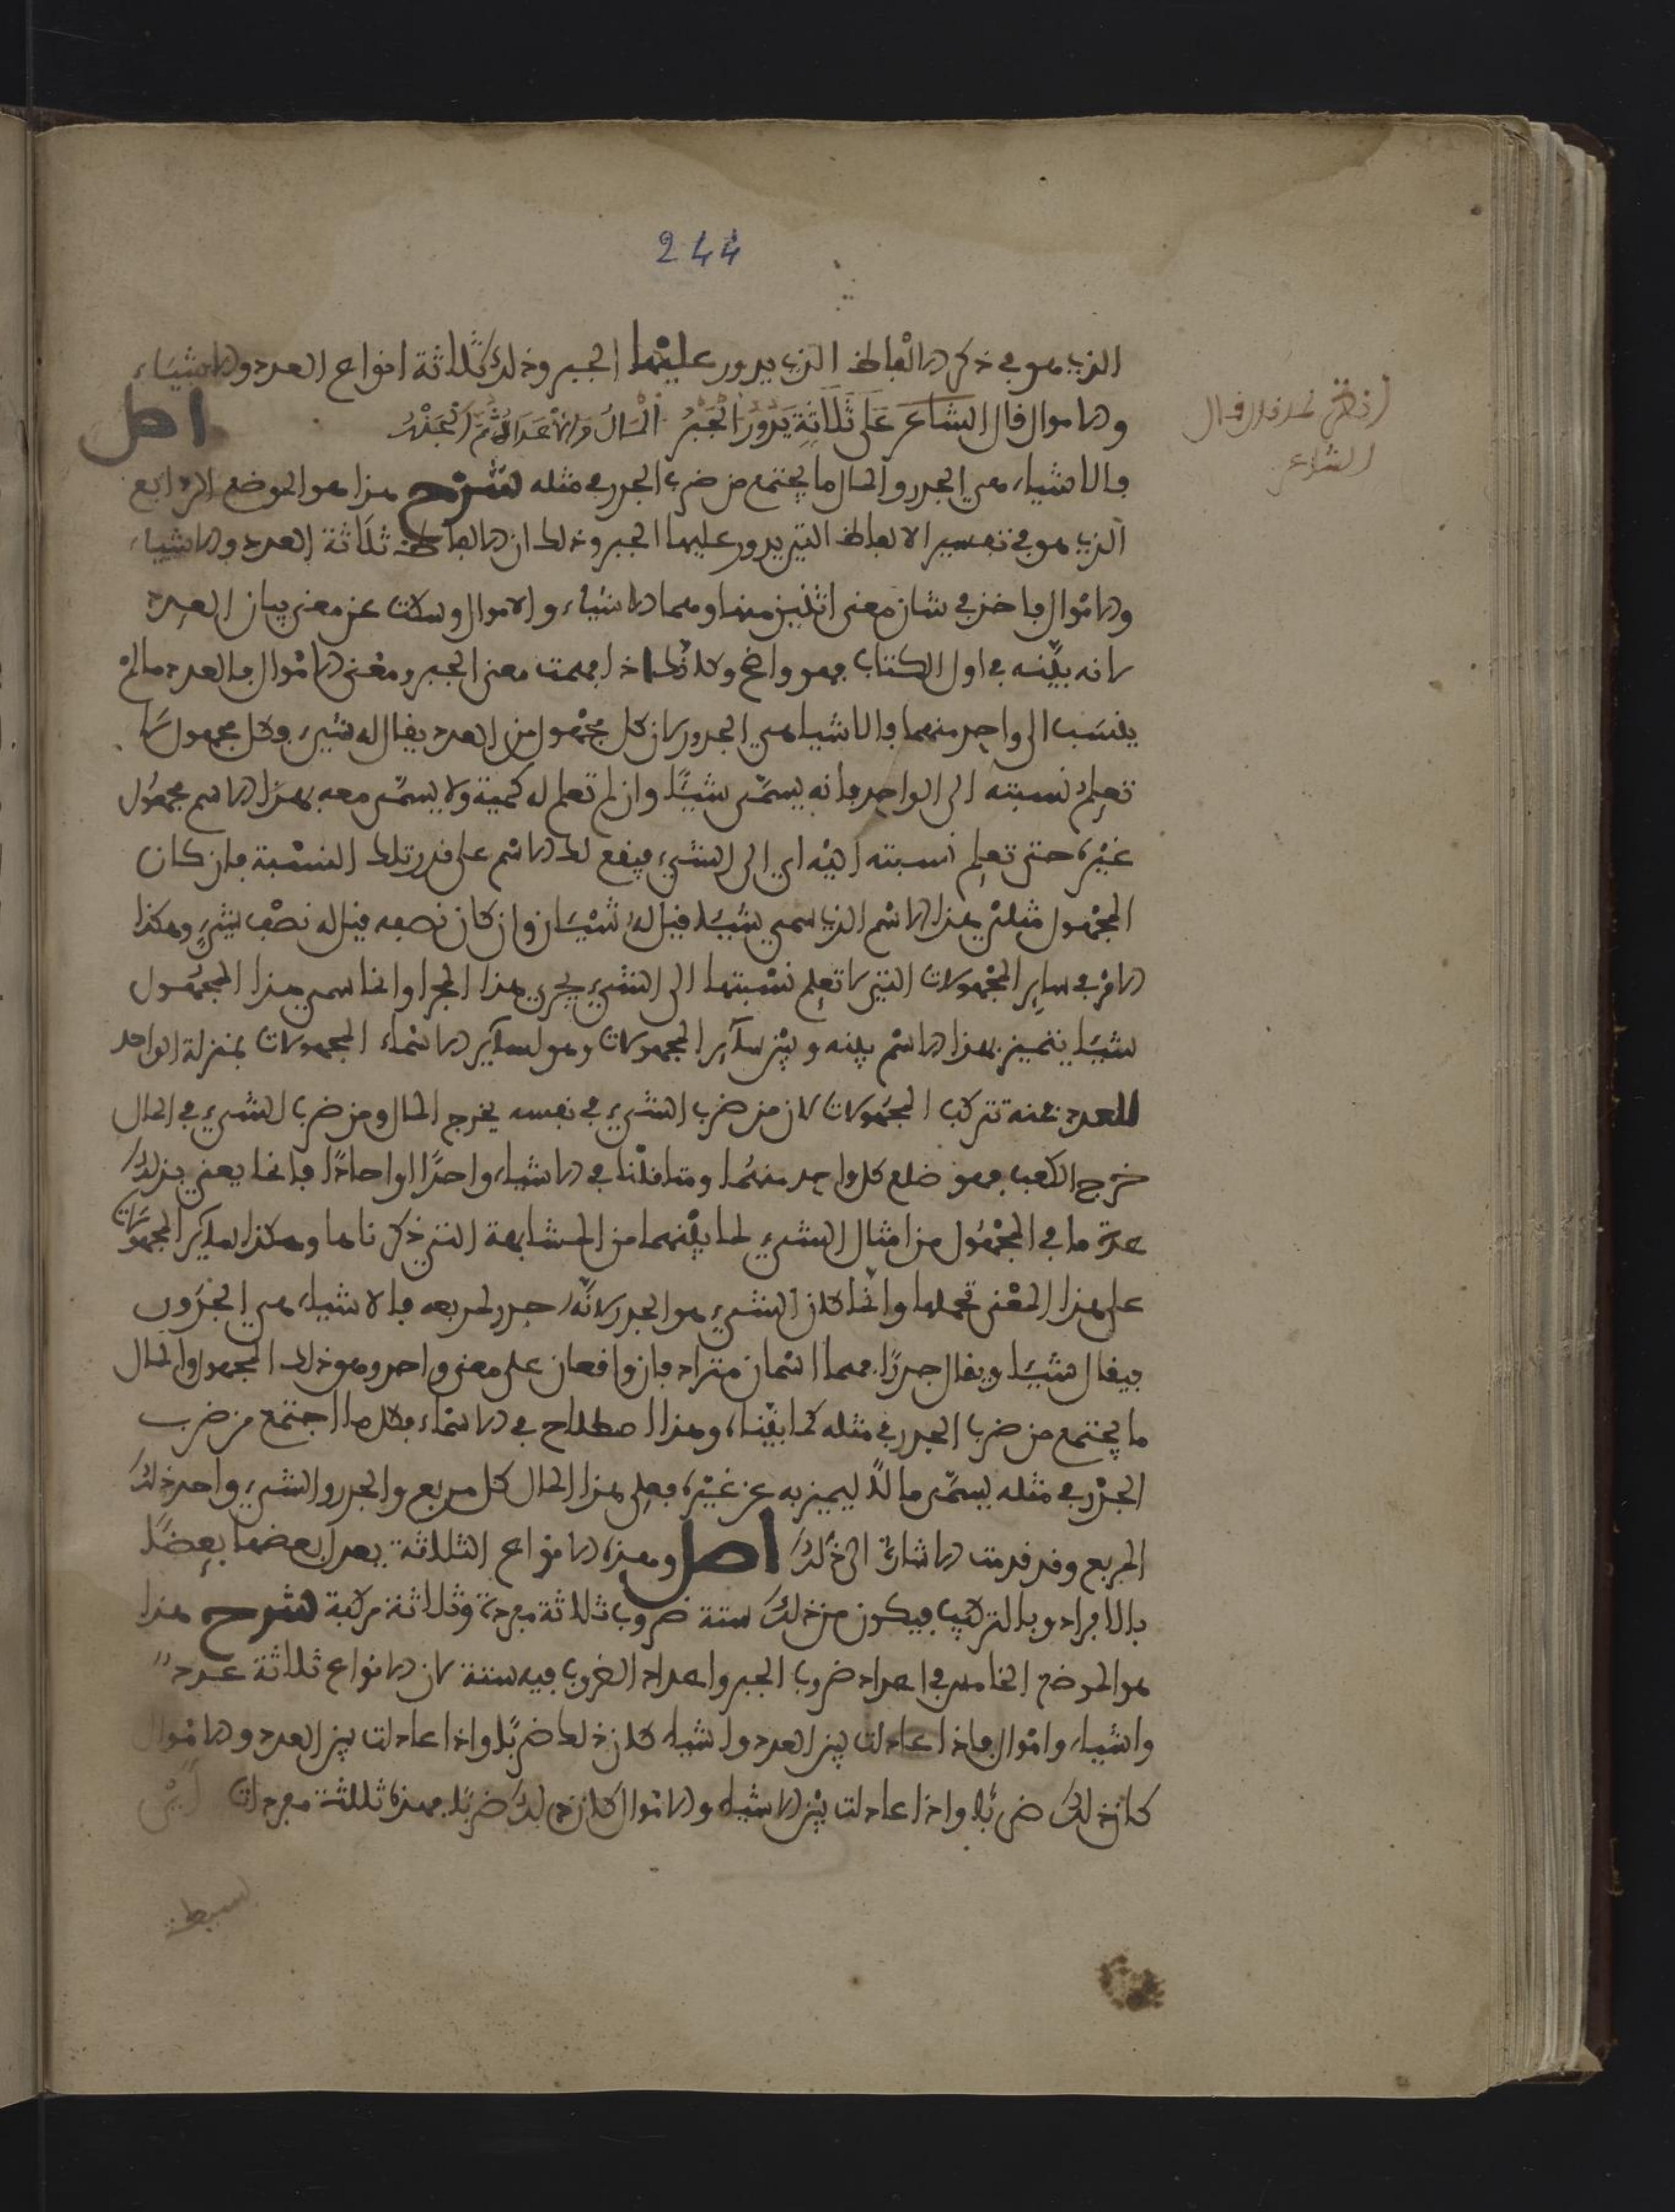 244
الذي هو في ذكر الالفاظ الذي يدور عليها الجبر وذلك ثلاثة انواع العدد والاشياء
والاموال قال الشاعر عَلَى ثَلَاثَةٍ يَدُورُ الْجَبْرُ الْمَالُ وَالْأَعْدَادُ ثُمَّ الْجَذْرُ اصل
قال الشاعر
فالاشياء هي الجذور والمال ما يجتمع من ضرب الجذر في مثله شرح هذا هو الموضع الرابع
الذي هو في تفسير الالفاظ التي يدور عليها الجبر وذلك ان الالفاظ ثلاثة العدد والاشياء
والاموال فاخذ في شان معنى اثنين منها وهما الاشياء والاموال وسكت عن معنى بيان العدد
لانه بيّنه في اول الكتاب فهو واضح وكذلك اذا فهمت معنى الجبر ومعنى الاموال فالعدد ما لم
ينسب الى واحد منهما فالاشيا هي الجذور لان كل مجهول من العدد يقال له شيء وكل مجهول لا
تعلم نسبته الى الواحد فانه يسمّى شيئًا وان لم تعلم له كمية ولا يسمّى معه بهذا الاسم مجهول
غيره حتى تعلم نسبته اليه اي الى الشيء فيقع له الاسم على قدر تلك النسبة فان كان
المجهول مثلي هذا الاسم الذي سمي شيئا قيل له شيئان وان كان نصفه قيل له نصف شيءٍ وهكذا
الامر في ساير المجهولات التي لا تعلم نسبتها الى الشيء يجري هذا المجرا وانما سمي هذا المجهول
شيئا يتميز بهذا الاسم بينه وبين ساير المجهولات وهو لساير الاسماء المجهولات بمنزلة الواحد
للعدد عنه تتركب المجهولات لان من ضرب الشيء في نفسه يخرج المال ومن ضرب الشيء في المال
خرج الكعب فهو ضلع كل واحد منهما ومتا قلنا في الاشياء واحدًا او احادًا فانما يعني بذلك
عدة ما في المجهول من امثال الشيء لما بينهما من المشابهة التي ذكرناها وهكذا ساير المجهولات
على هذا المعنى تحملها وانما كان الشيء هو الجذر لانّه جذر لمربعه فالاشياء هي الجذور
فيقال شيئا ويقال جذرًا فهما اسمان مترادفان واقعان على معنى واحد وهو ذلك المجهول والمال
ما يجتمع من ضرب الجذر في مثله كما بيّنا وهذا اصطلاح في الاسماء فكل ما اجتمع من ضرب
الجذر في مثله يسمّى مالًا ليميز به عن غيره فعلى هذا المال كل مربع والجذر والشيء واحد ذلك
المربع وقد قدمت الاشارة الى ذلك اصل وهذه الانواع الثلاثة يعدل بعضها بعضًا
بالافراد وبالتركيب فيكون من ذلك ستة ضروب ثلاثة مفردة وثلاثة مركبة شرح هذا
هو الموضع الخامس في اعداد ضروب الجبر واعداد الضروب فيه ستة لان الانواع ثلاثة عدد
واشياء واموال فاذا عادلت بين العدد واشياء كان ذلك ضربًا واذا عادلت بين العدد والاموال
كان ذلك ضربًا واذا عادلت بين الاشياء والاموال كان ذلك ضربًا فهذه ثلاثة مفردات